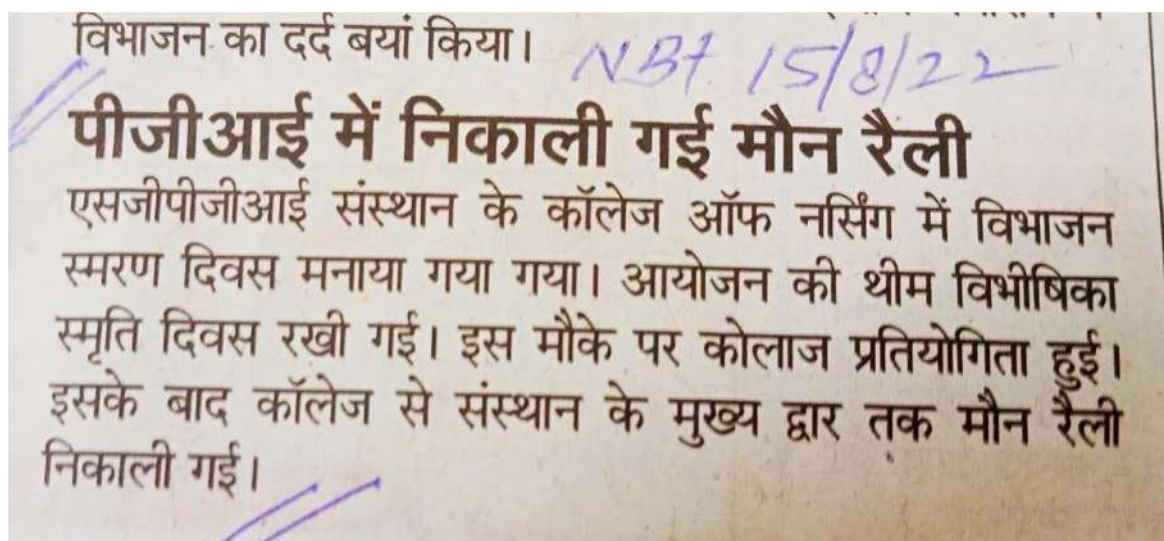 विभाजन का दर्द बयां किया।
NBT 15/8/22
पीजीआई में निकाली गई मौन रैली
एसजीपीजीआई संस्थान के कॉलेज ऑफ नर्सिंग में विभाजन
स्मरण दिवस मनाया गया गया। आयोजन की थीम विभीषिका
स्मृति दिवस रखी गई। इस मौके पर कोलाज प्रतियोगिता हुई।
इसके बाद कॉलेज से संस्थान के मुख्य द्वार तक मौन रैली
निकाली गई।